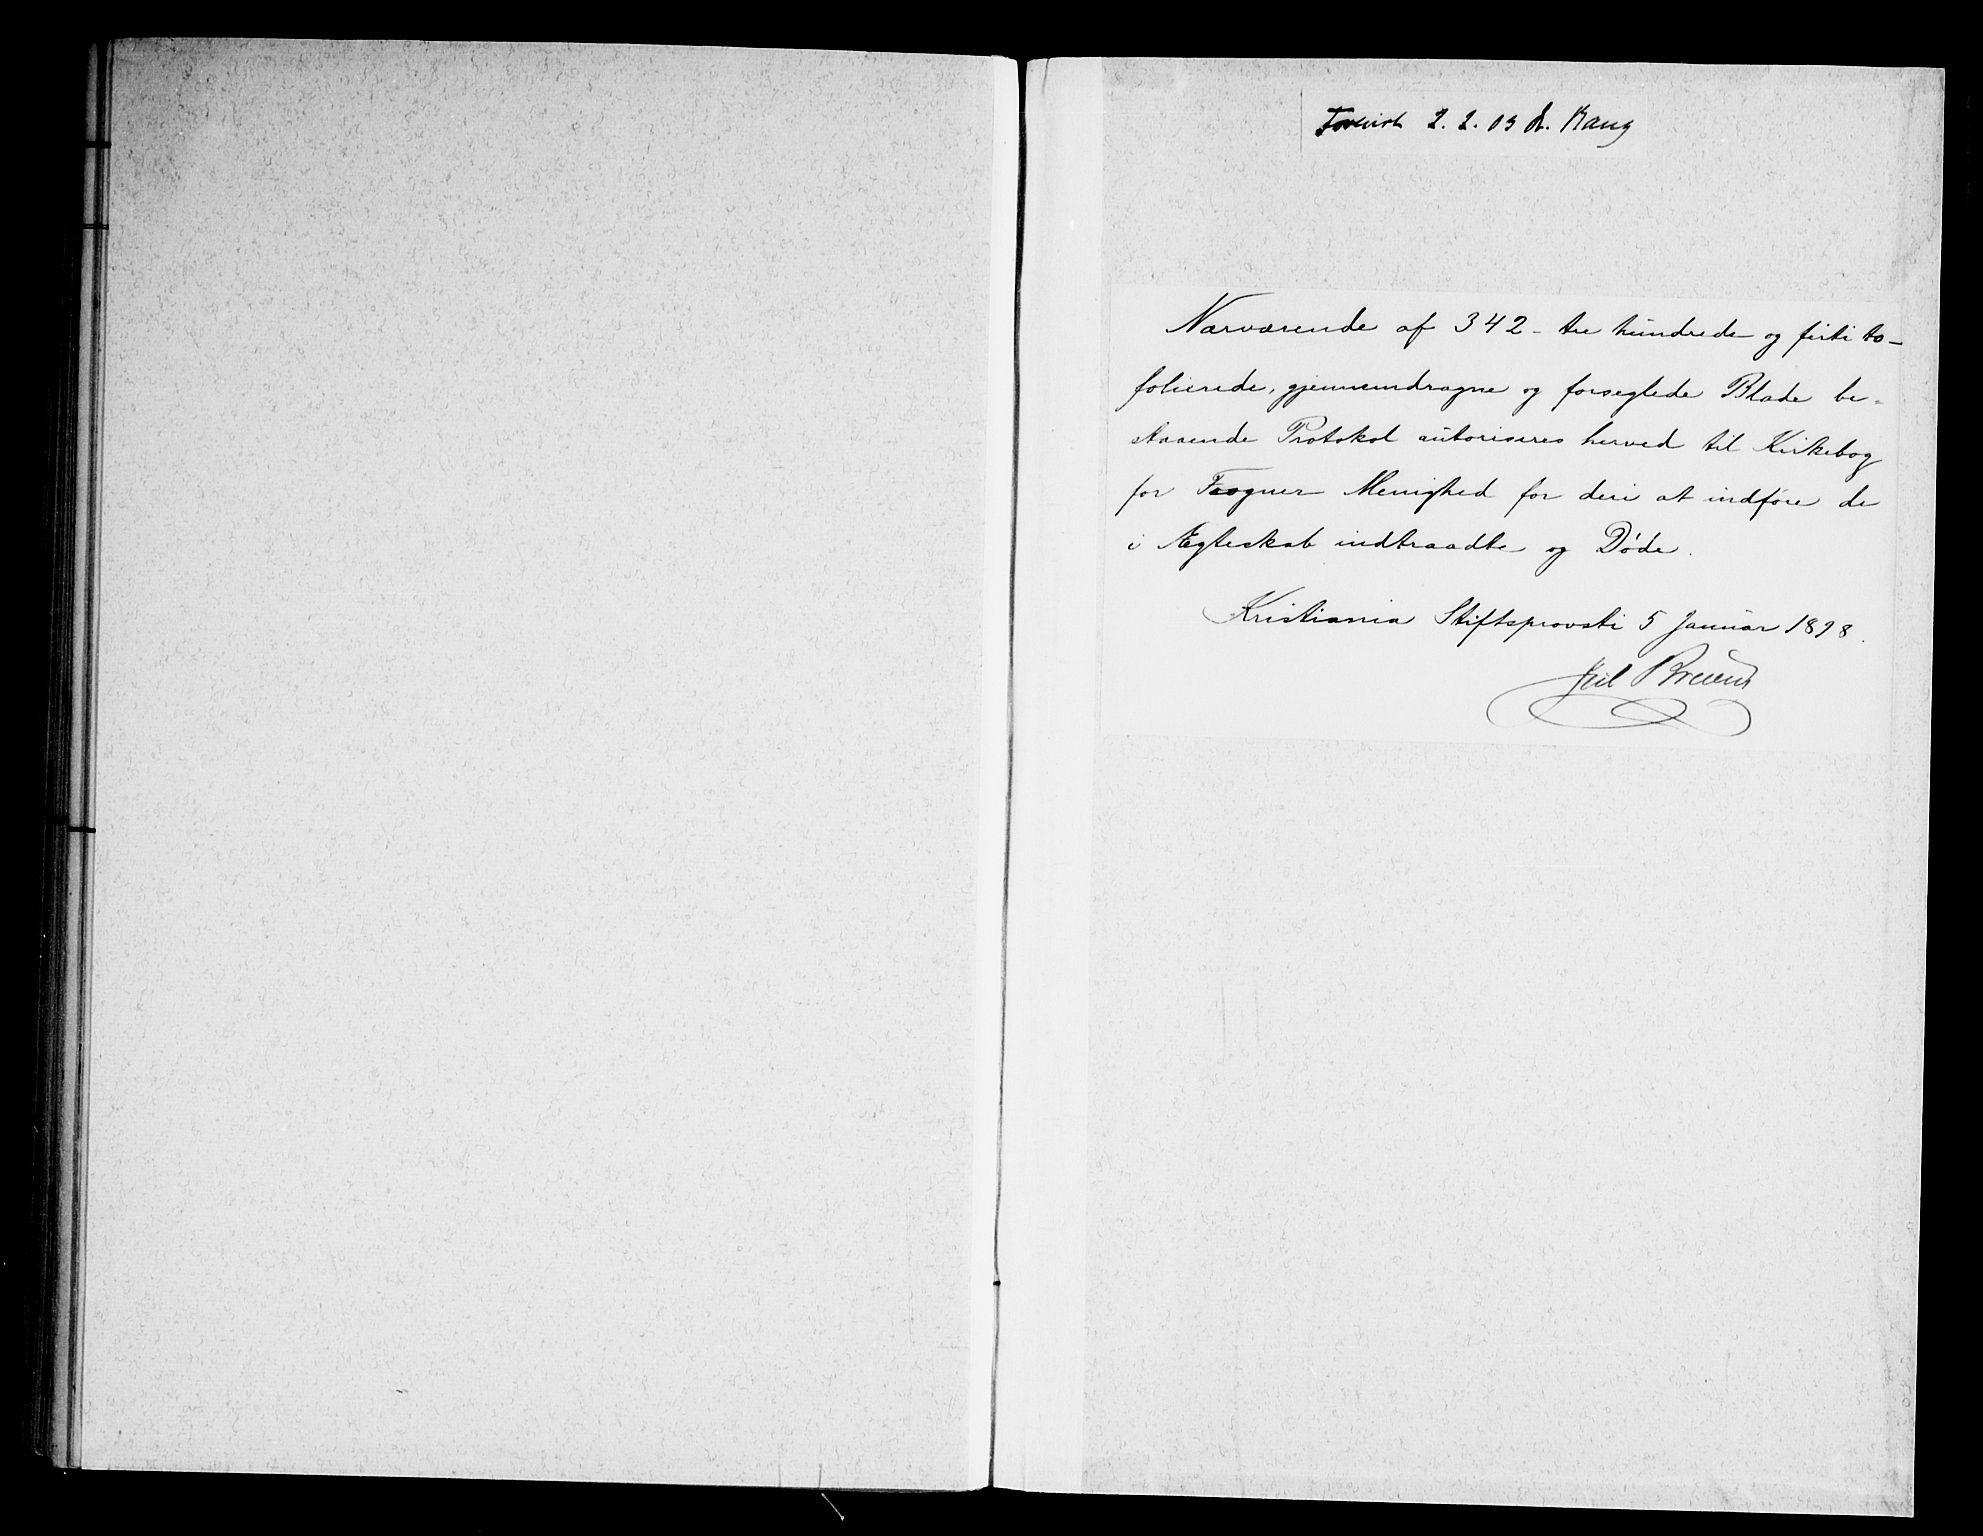 Forevist 2. 2. 03 A. Bang
Nærværende af 342 - tre hundrede og firti to -
folierede, gjennemdragne og forseglede Blade be-
staaende Protokol autoriseres herved til Kirkebog
for Frogner Menighed for deri at indføre de
i Ægteskab indtraadte og Døde.
Kristiania Stiftsprovsti 5 Januar 1898.